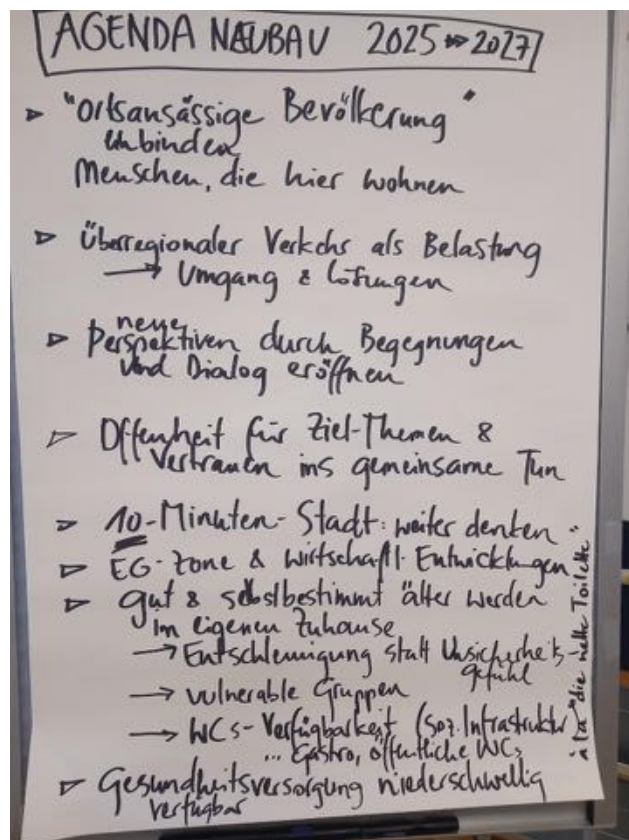 AGENDA NEUBAU 2025 ⇨ 2027
▷ "Ortsansässige Bevölkerung"
Einbinden
Menschen, die hier wohnen
▷ Überregionaler Verkehr als Belastung
→ Umgang & Lösungen
▷ neue
Perspektiven durch Begegnungen
und Dialog eröffnen
▷ Offenheit für Ziel-Themen &
Vertrauen ins gemeinsame Tun
▷ 10-Minuten-Stadt: weiter denken
▷ EG-Zone & wirtschaftl. Entwicklungen
▷ gut & selbstbestimmt älter werden
im eigenen Zuhause
→ Entschleunigung statt Unsicherheits-
gefühl
→ vulnerable Gruppen
→ WCs-Verfügbarkeit (soz. Infrastruktur)
... Gastro, öffentliche WCs
"à la "die nette Toilette"
▷ Gesundheitsversorgung niederschwellig
verfügbar